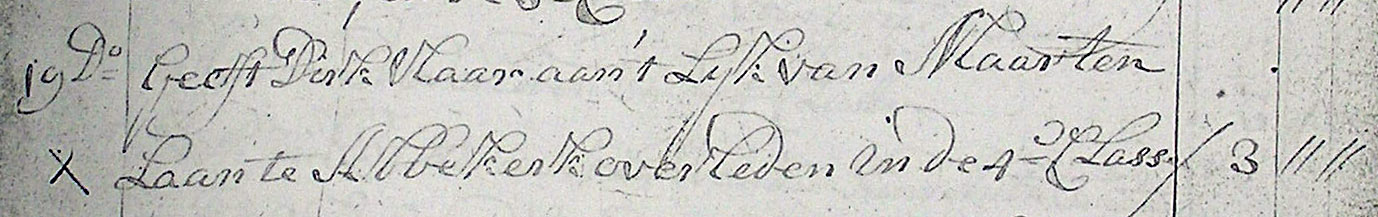 19 Do Geeft Dirk Vlaar aan't Lijk van Maarten
X Laan te Abbekerk overleden in de 4de Class / 3 " "